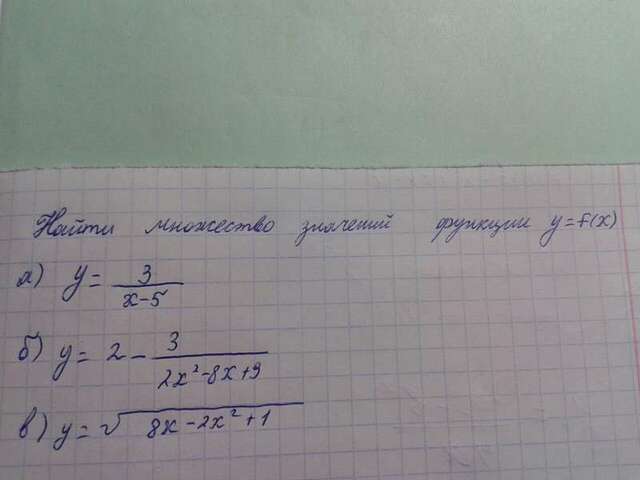 Найти множество значений функции y=f(x)
а) y = 3/(x-5)
б) y = 2 - 3/(2x²-8x+9)
в) y = √(8x-2x²+1)